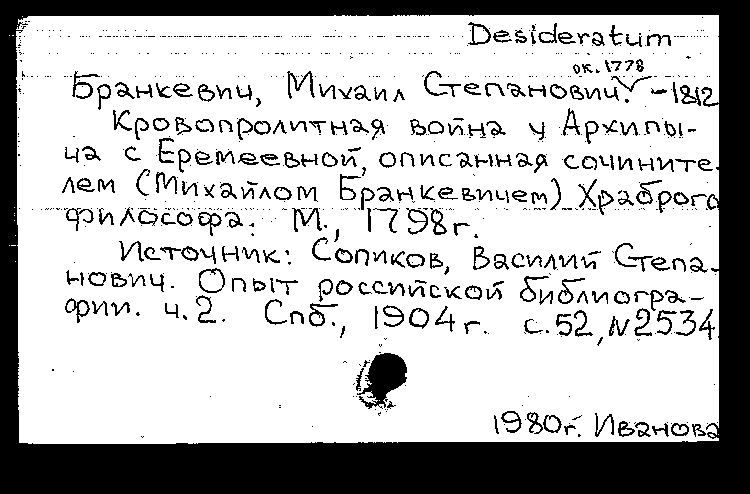 Desideratum
ок. 1778
Бранкевич, Михаил Степанович. -1812
Кровопролитная война у Архипы-
ча с Еремеевной, описанная сочините-
лем (Михайлом Бранкевичем) Храброго
философа. М., 1798г.
Источник: Сопиков, Василий Степа-
нович. Опыт российской библиогра-
фии. ч.2. Спб., 1904г. с.52, N2534.
1980г. Иванова